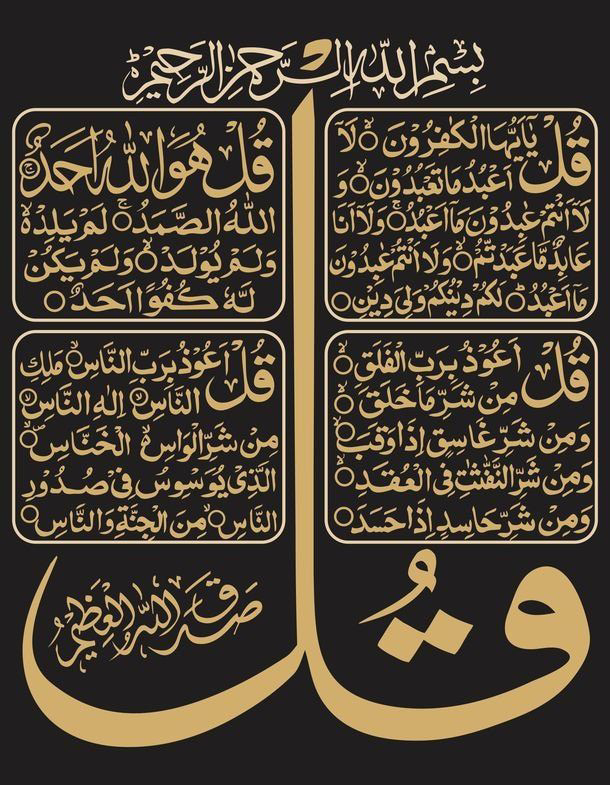 بِسْمِ اللهِ الرَّحْمٰنِ الرَّحِيْمِ
قُلْ يٰۤاَيُّهَا الْكٰفِرُوْنَ ۙ○ لَاۤ
اَعْبُدُ مَا تَعْبُدُوْنَ ۙ○ وَ
لَاۤ اَنْتُمْ عٰبِدُوْنَ مَاۤ اَعْبُدُ ۚ○ وَلَاۤ اَنَا
عَابِدٌ مَّا عَبَدْتُّمْ ۙ○ وَلَاۤ اَنْتُمْ عٰبِدُوْنَ
مَاۤ اَعْبُدُ ؕ○ لَكُمْ دِيْنُكُمْ وَلِيَ دِيْنِ ○
قُلْ هُوَ اللهُ اَحَدٌ ۚ○
اَللهُ الصَّمَدُ ۚ○ لَمْ يَلِدْ ۙ○
وَلَمْ يُوْلَدْ ۙ○ وَلَمْ يَكُنْ
لَّهٗ كُفُوًا اَحَدٌ ○
قُلْ اَعُوْذُ بِرَبِّ الْفَلَقِ ۙ○
مِنْ شَرِّ مَا خَلَقَ ۙ○
وَمِنْ شَرِّ غَاسِقٍ اِذَا وَقَبَ ۙ○
وَمِنْ شَرِّ النَّفّٰثٰتِ فِى الْعُقَدِ ۙ○
وَمِنْ شَرِّ حَاسِدٍ اِذَا حَسَدَ ○
قُلْ اَعُوْذُ بِرَبِّ النَّاسِ ۙ○ مَلِكِ
النَّاسِ ۙ○ اِلٰهِ النَّاسِ ۙ○
مِنْ شَرِّ الْوَاسِ ۙ○ الْخَنَّاسِ ۙ○
الَّذِىْ يُوَسْوِسُ فِىْ صُدُوْرِ
النَّاسِ ۙ○ مِنَ الْجِنَّةِ وَالنَّاسِ ○
قُلْ
صَدَقَ اللهُ الْعَظِيْمُ